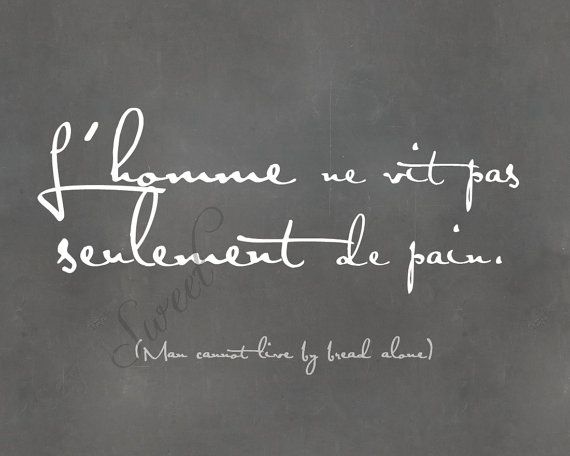 L'homme ne vit pas
seulement de pain.
Sweet
(Man cannot live by bread alone)